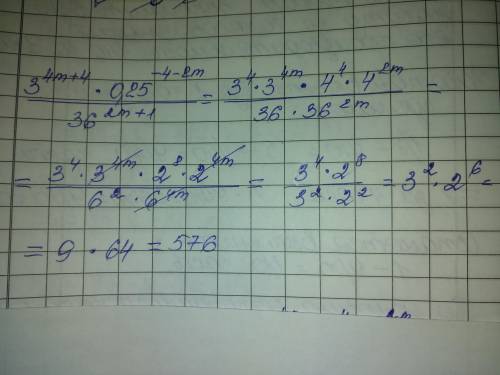 (3^(4m+4) · 0,25^(-4-2m)) / 36^(2m+1) = (3^4 · 3^(4m) · 4^4 · 4^(2m)) / (36 · 36^(2m)) =
= (3^4 · 3^(4m) · 2^8 · 2^(4m)) / (6^2 · 6^(4m)) = (3^4 · 2^8) / (3^2 · 2^2) = 3^2 · 2^6 =
= 9 · 64 = 576